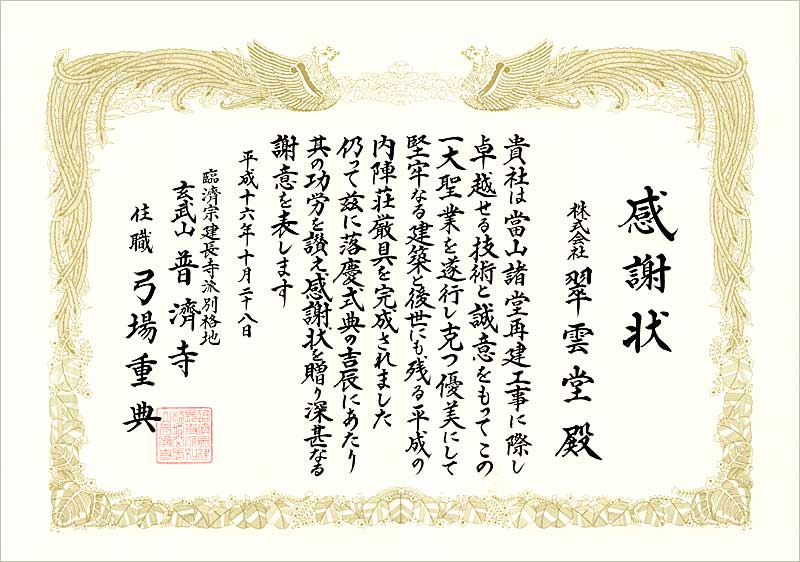 感謝状
株式会社 翠雲堂殿
貴社は當山諸堂再建工事に際し
卓越せる技術と誠意をもってこの
一大聖業を遂行し克つ優美にして
堅牢なる建築と後世にも残る平成の
内陣荘厳具を完成されました
仍って茲に落慶式典の吉辰にあたり
其の功労を讃え感謝状を贈り深甚なる
謝意を表します
平成十六年十月二十八日
臨済宗建長寺派別格地
玄武山 普濟寺
住職 弓場重典